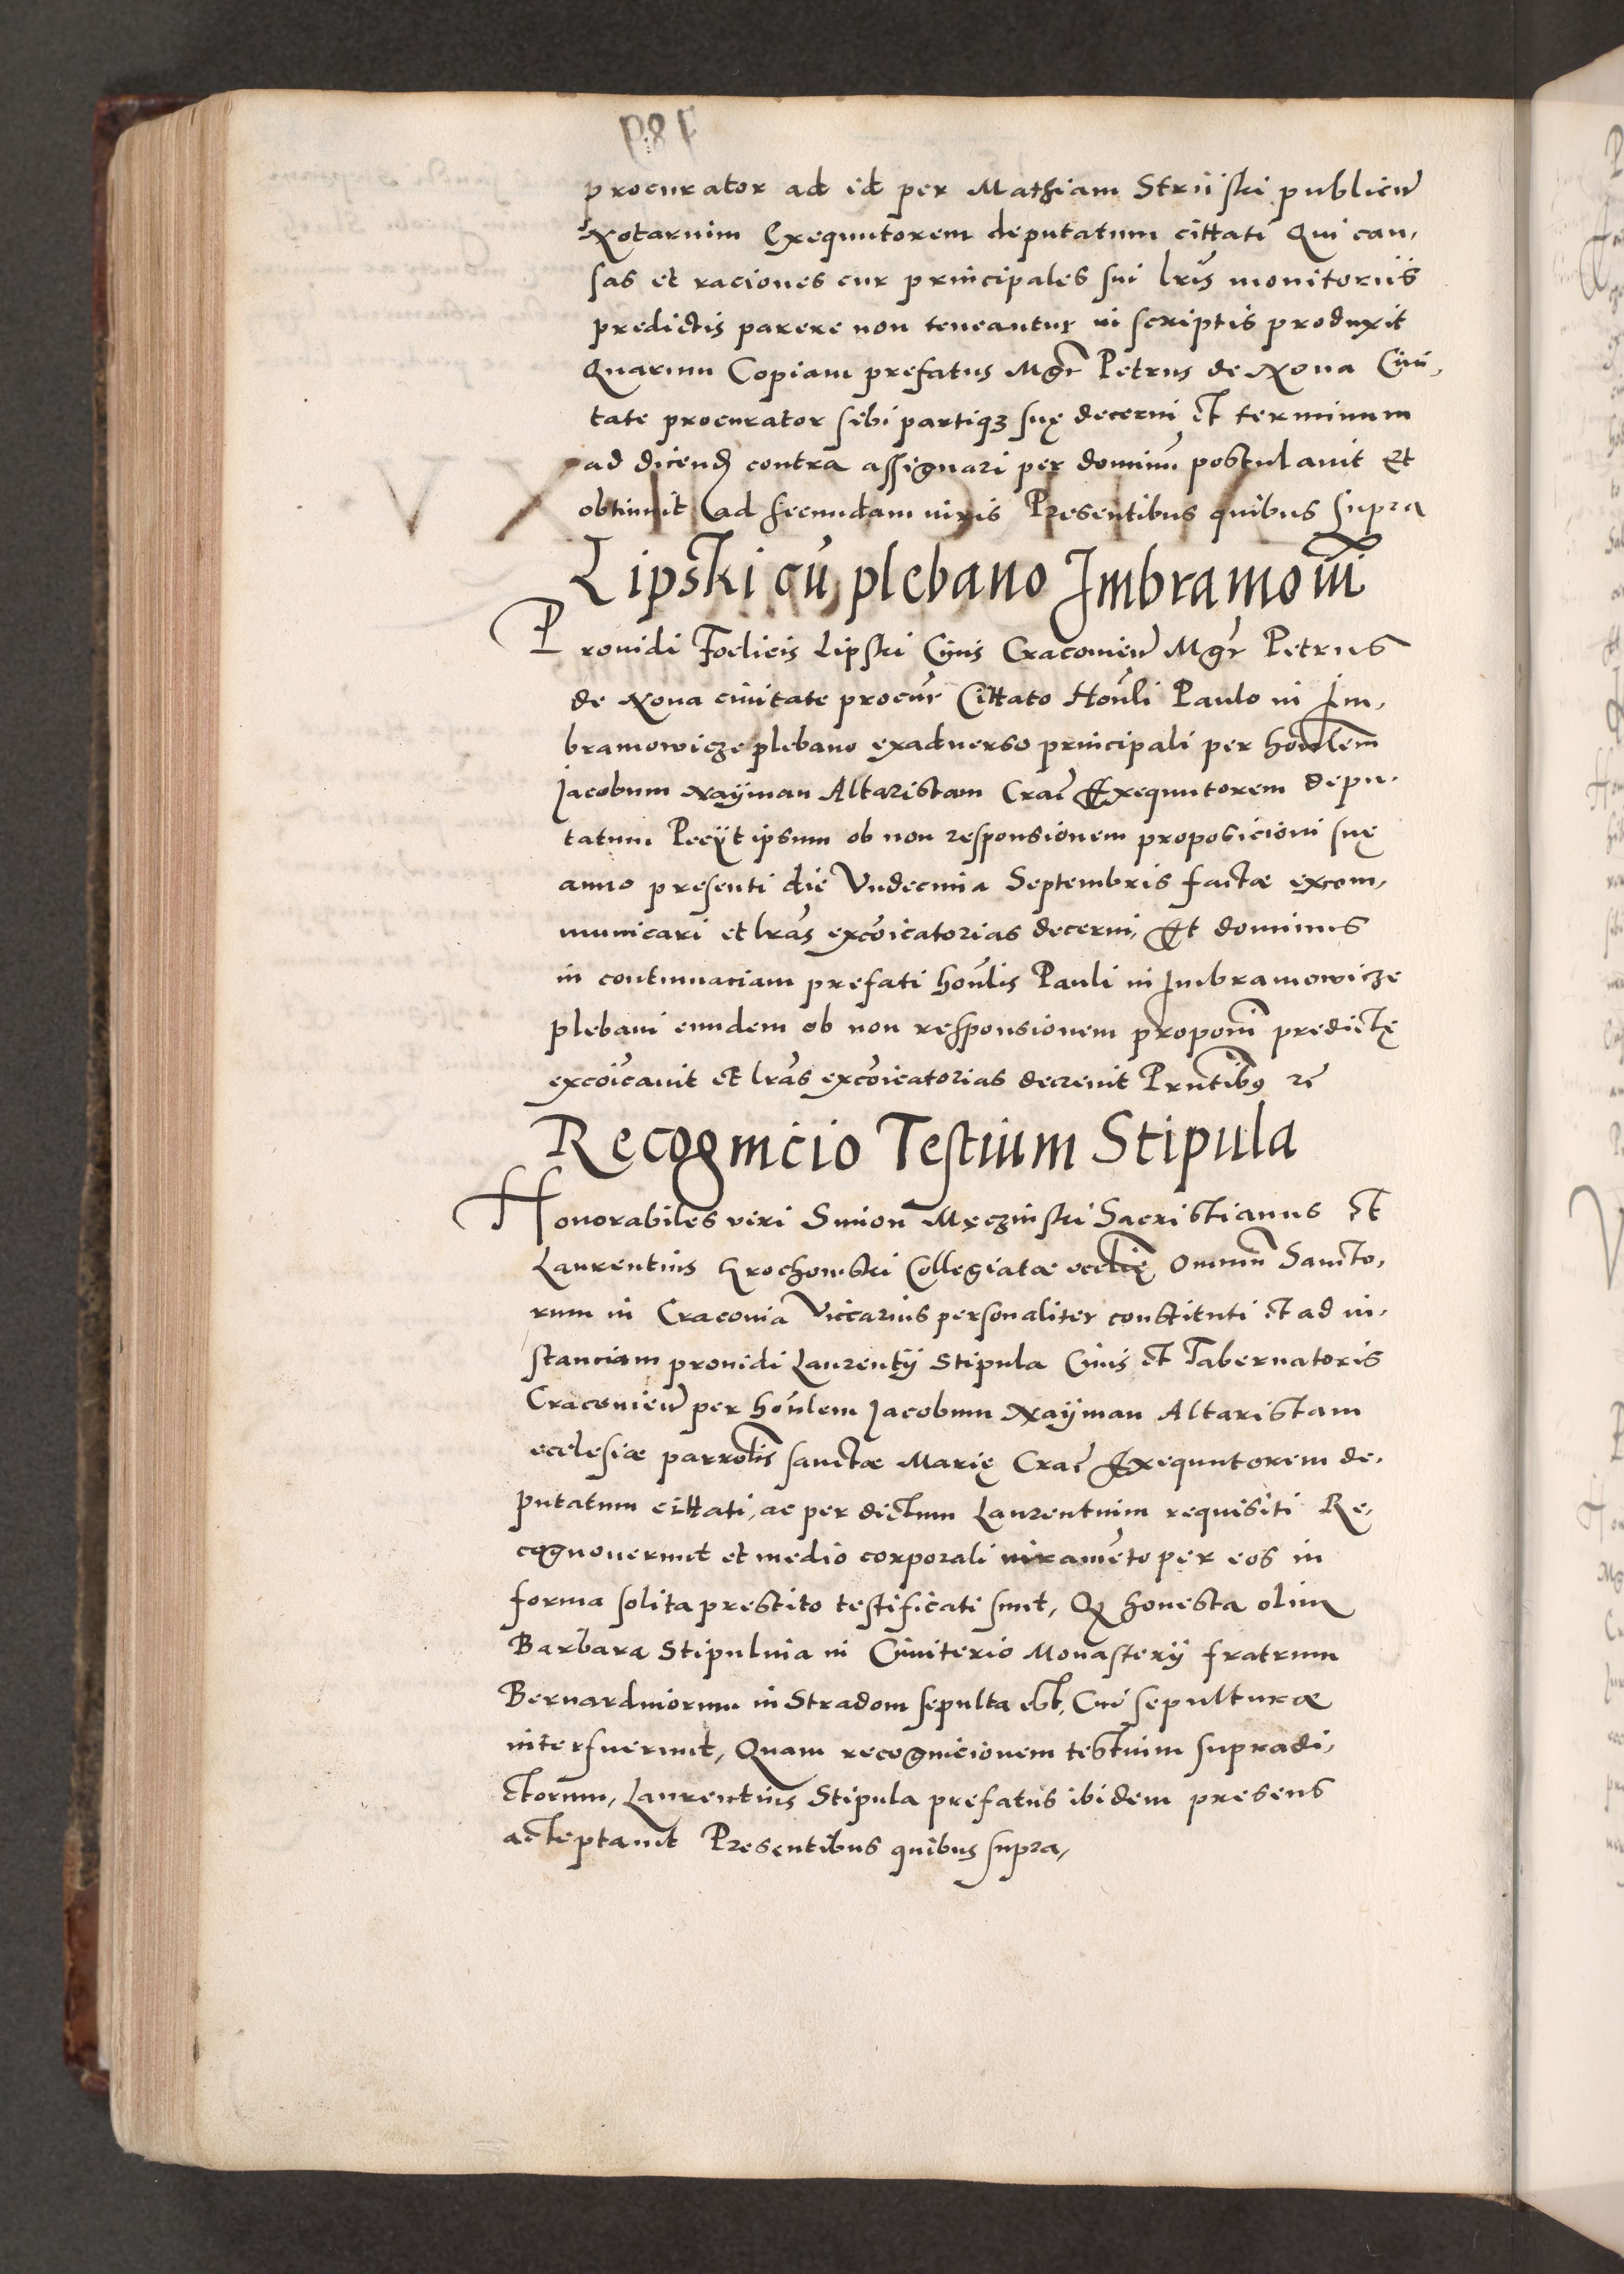 procurator ad id per Mathiam Strijski publicũ
Notarium Exequutorem deputatum cittati Qui cau,
sas et raciones cur principales sui lr̃is monitoriis
predictis parere non teneantur in scriptis produxit
Quarum Copiam prefatus Mgr̃ Petrus de Nova Civi,
tate procurator sibi partiqz suę decerni et terminum
ad dicend contra assignari per dominũ postulavit Et
obtinuit ad secundam iuris Presentibus quibus supra
Lipski cũ plebano Imbramowi
Providi Foelicis Lipski Civis Cracovien Mgr̃ Petrus
de Nova civitate procur̃ Cittato Honrli Paulo in Im,
bramowicze plebano exadverso principali per honrlem
Jacobum Naÿman Altaristam Crac̃ Exequutorem depu,
tatum Pecÿt ipsum ob non responsionem proposicioni suę
anno presenti die Undecima Septembris factæ excom,
municari et lr̃as excõicatorias decerni, Et dominus
in contumaciam prefati honrlis Pauli in Imbramowicze
plebani eundem ob non responsionem proponi predictę
excõicavit et lr̃as excõicatorias decrevit Prntibus rc̃
Recognicio Testium Stipula
Honorabiles viri Simon Męczinski Sacristianus et
Laurentius Grochowski Collegiatæ ecclię Omniũ Sancto,
rum in Cracovia Viccarius personaliter constituti et ad in,
stanciam providi Laurentÿ Stipula Civis et Tabernatoris
Cracovien per honrlem Jacobum Naÿman Altaristam
ecclesiæ parrolis sanctæ Marię Crac̃ Exequutorem de,
putatum cittati, ac per dictum Laurentium requisiti Re,
cognoverunt et medio corporali iuramẽto per eos in
forma solita prestito testificati sunt, Q honesta olim
Barbara Stipulina in Cimiterio Monasterÿ fratrum
Bernardinorum in Stradom sepulta est, Cui sepulturæ
interfuerunt, Quam recognicionem testium supradi,
ctorum, Laurentius Stipula prefatus ibidem presens
acteptavit Presentibus quibus supra,